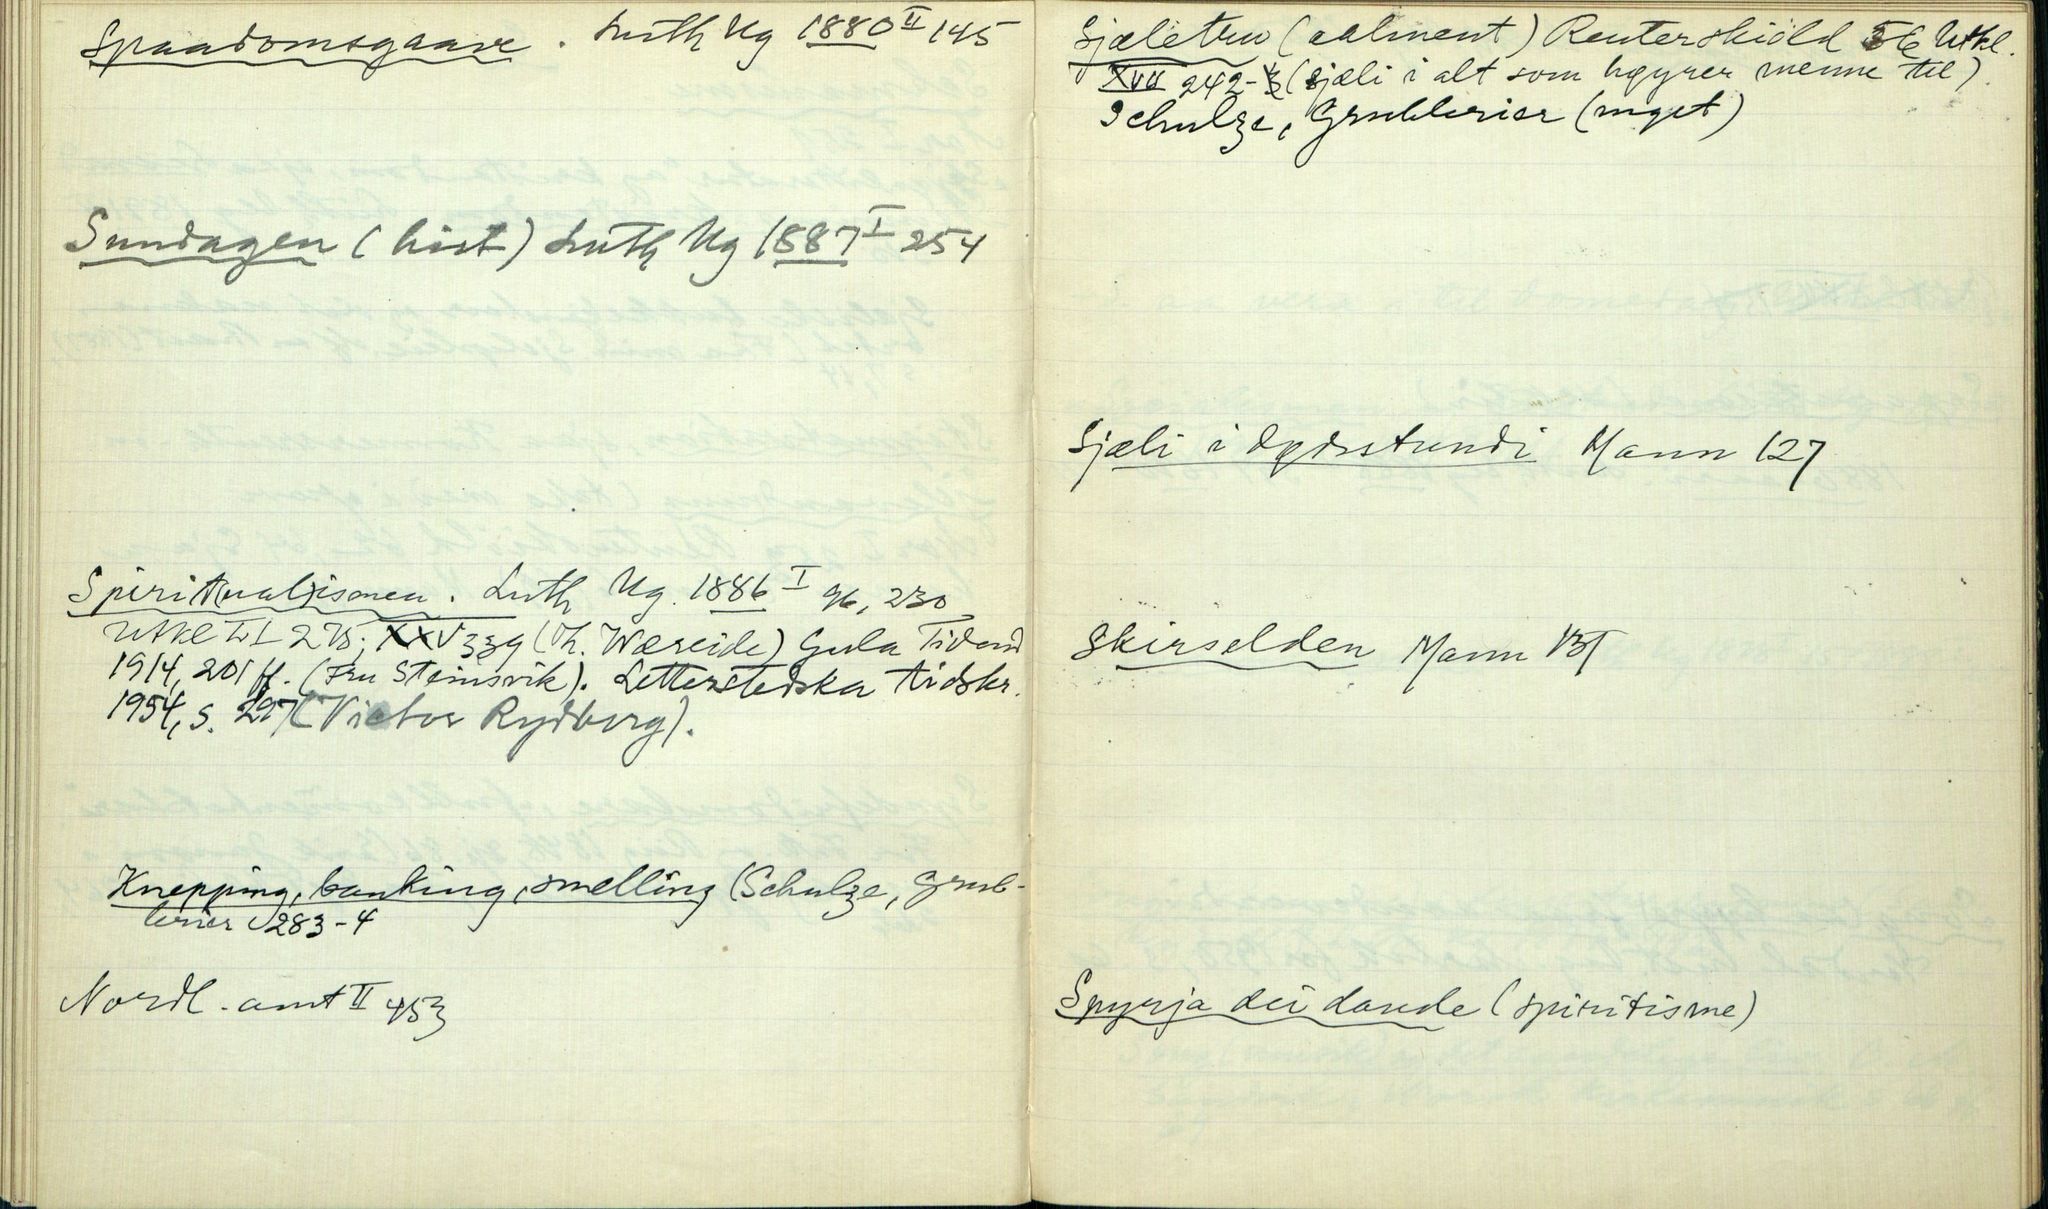 Spaadomsgaave. Luth Ug 1880 II 145
Sundagen (hist) Luth Ug 1887 I 254
Spirit(ual)ismen. Luth Ug. 1886 I 96, 230
Utkl 275; XXV 339 (Th. Wereide) Gula Tidend
1914, 201 ff. (Fru Steinsvik). Letterstedska tidskr.
1954, s. 297 (Victor Rydberg).
Knepping, banking, smelling (Schulze, Grub-
lerier 283-4
Nordl. amt II 453
Sjæletru (aalment) Reuterskiöld Utkl.
XVII 242-3 (sjæli i alt som høyrer menne til)
Schulze, Grublerier (myet)
Sjæli i dødsstundi Mann 127
Skirselden Mann
Spyrja dei daude (spiritisme)